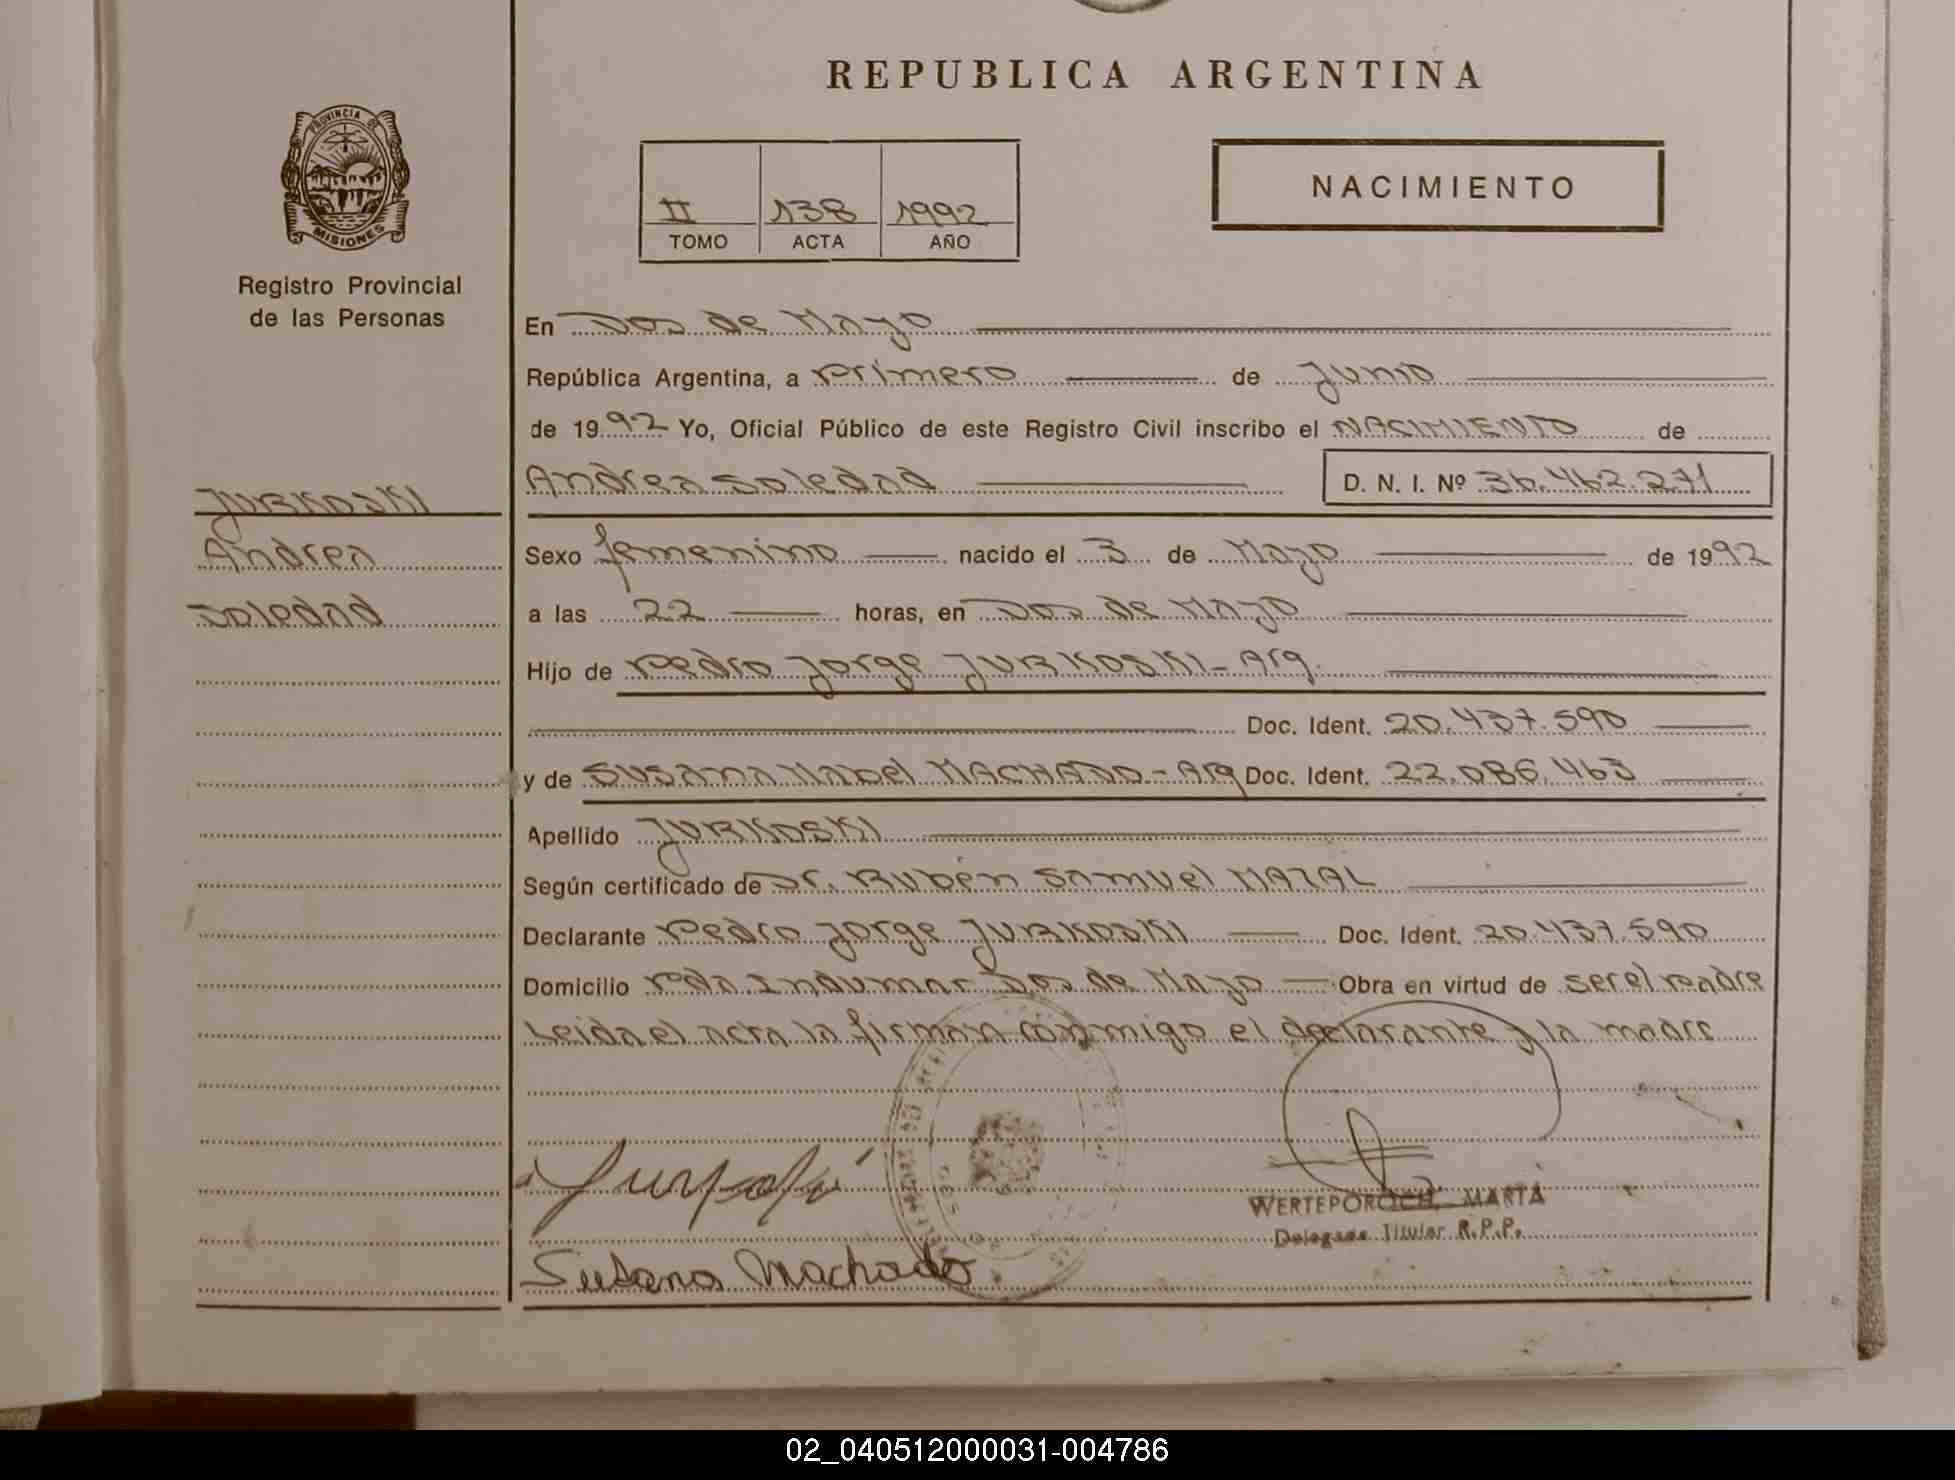 REPUBLICA ARGENTINA
PROVINCIA DE
MISIONES
Registro Provincial
de las Personas
II 138 1992
TOMO ACTA AÑO
NACIMIENTO
En Dos de Mayo
República Argentina, a Primero de Junio
de 1992 Yo, Oficial Público de este Registro Civil inscribo el NACIMIENTO de
Andrea Soledad D. N. I. Nº 36.462.271
JURKOSKI
Andrea
Soledad
Sexo femenino nacido el 3 de Mayo de 1992
a las 22 horas, en Dos de Mayo
Hijo de Pedro Jorge JURKOSKI - Arg.
Doc. Ident. 20.437.590
y de SUSANA Mabel MACHADO - Arg Doc. Ident. 22.086.463
Apellido JURKOSKI
Según certificado de Dr. Rubén Samuel MAZAL
Declarante Pedro Jorge JURKOSKI Doc. Ident. 20.437.590
Domicilio Pda Indumar Dos de Mayo Obra en virtud de ser el padre
Leida el acta la firman conmigo el declarante y la madre
Susana Machado
WERTEPOROCH, MARTA
Delegada Titular R.P.P.
02_040512000031-004786